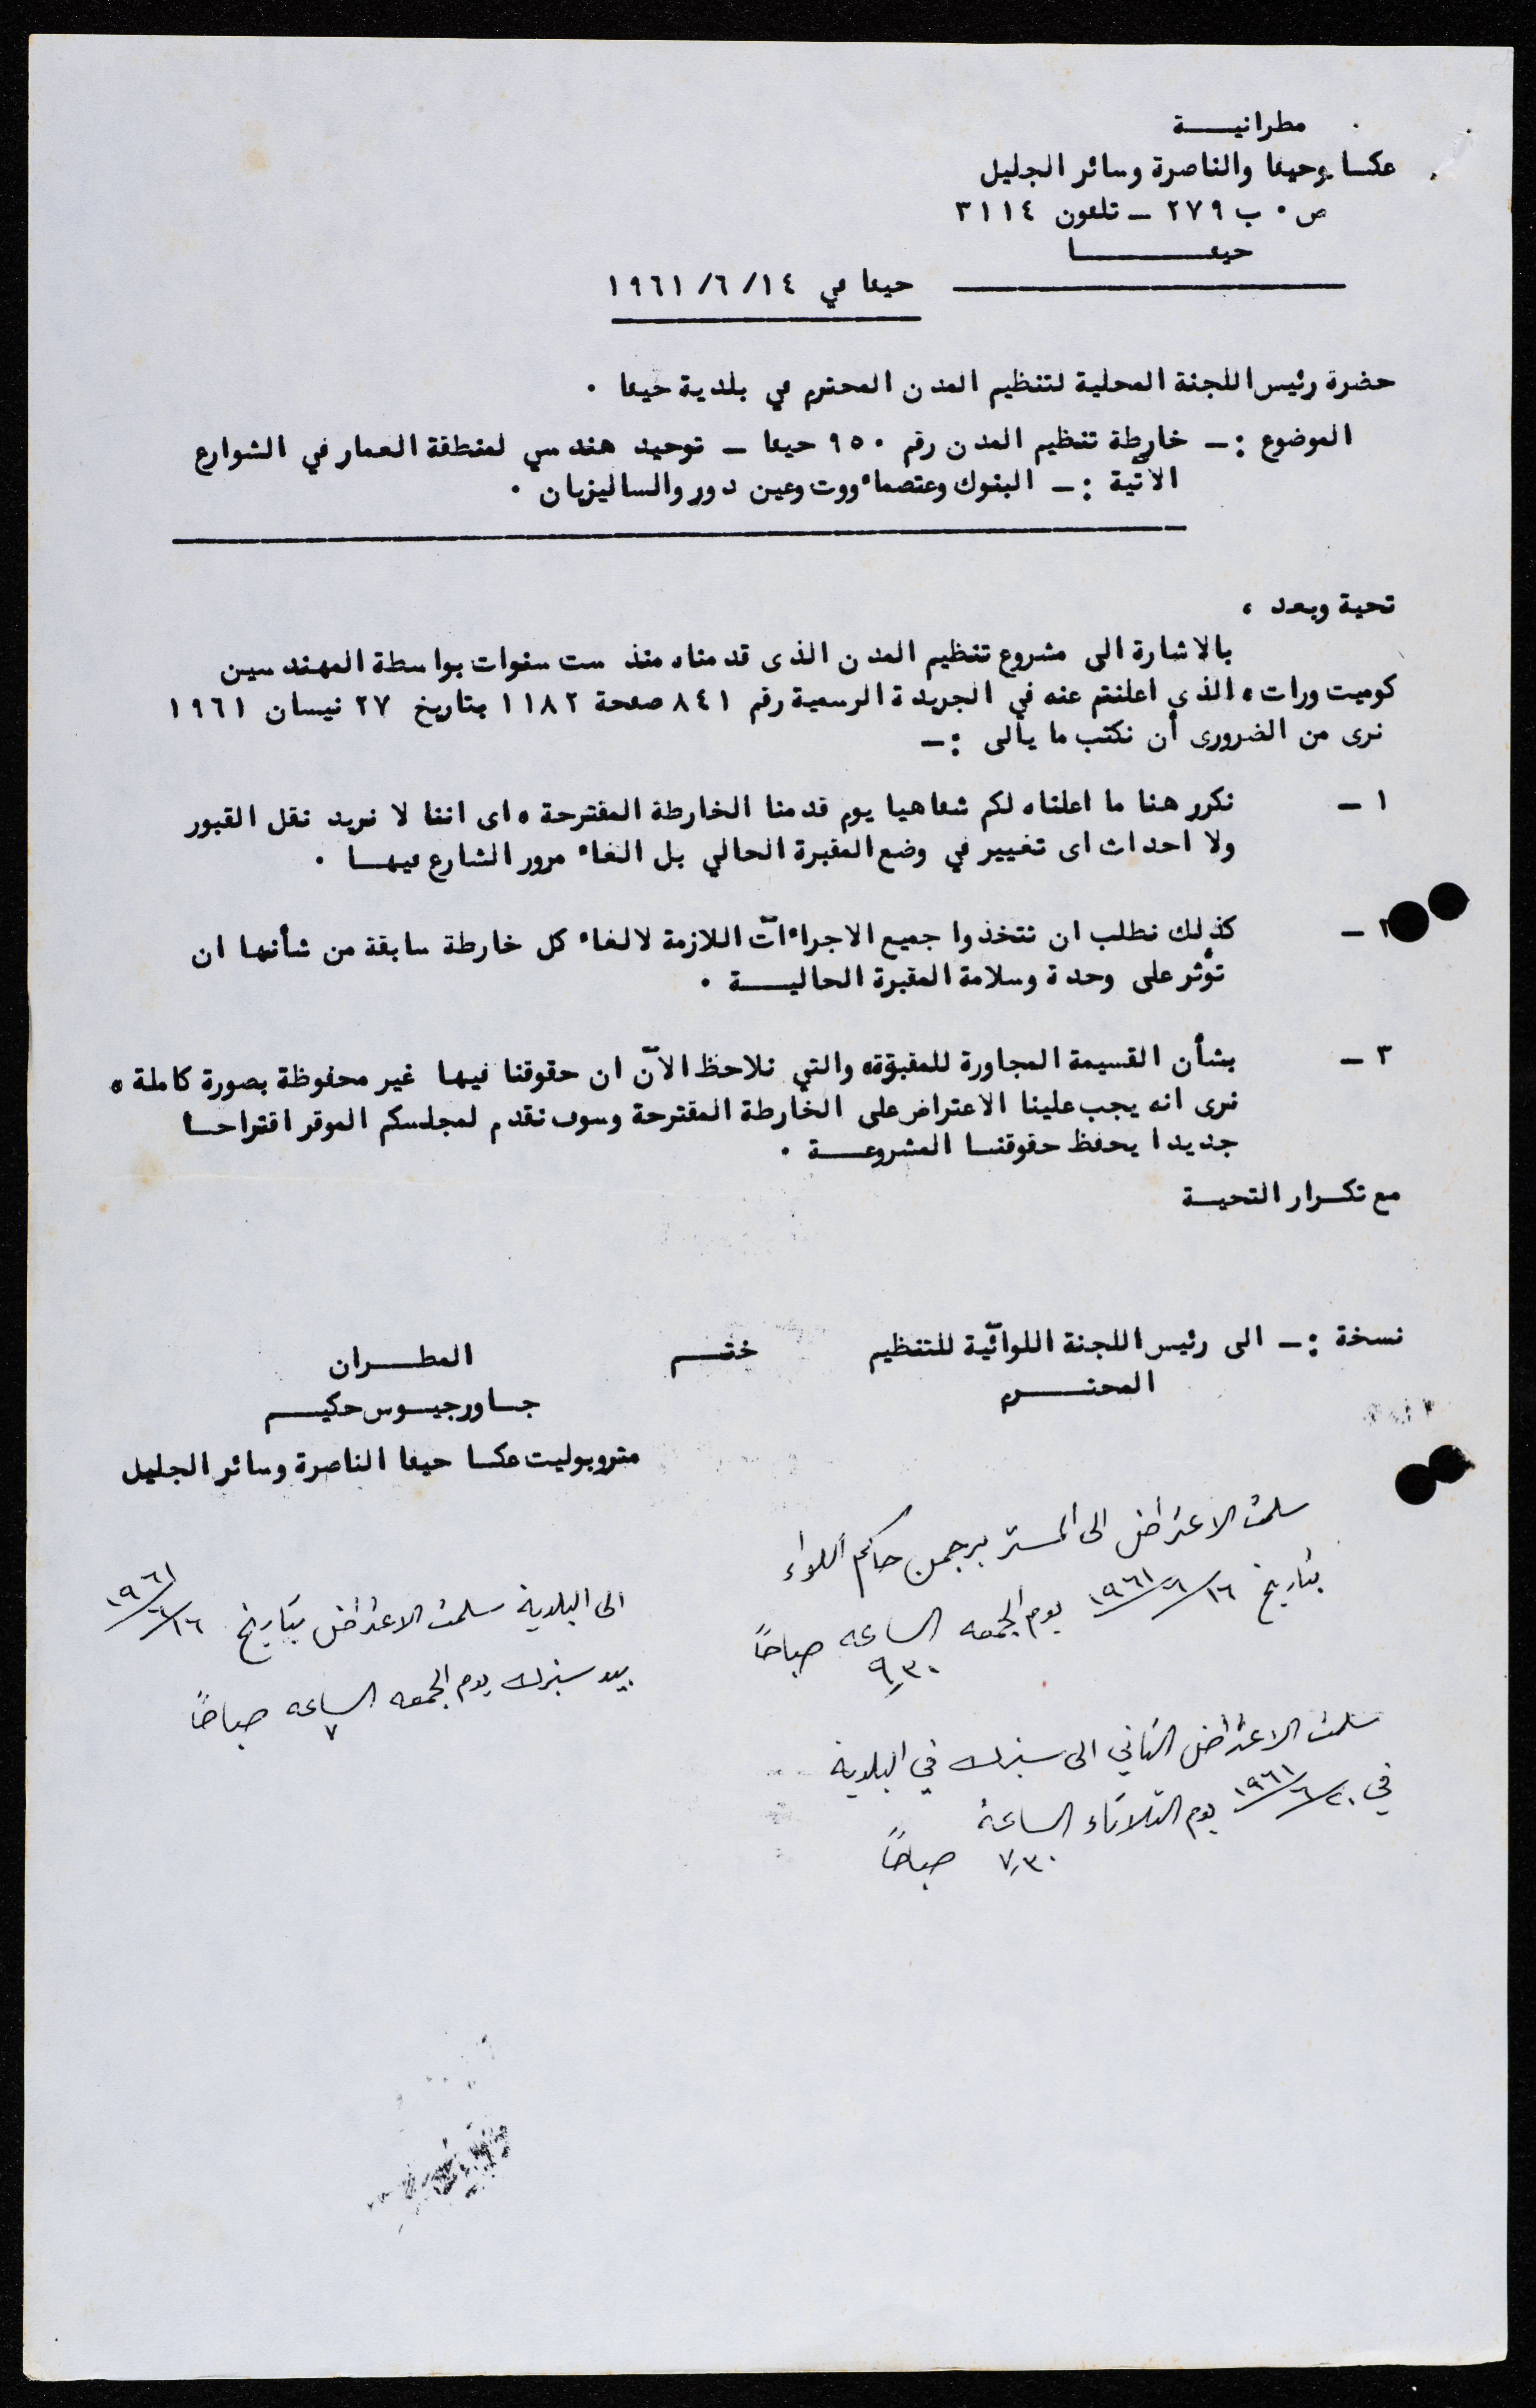 مطرانيـــة
عكــا وحيفا والناصرة وسائر الجليل
ص ٠ ب ٢٧٩ ــ تلفون ٣١١٤
حيفــــــا
حيفا في ١٤/ ٦/ ١٩٦١
حضرة رئيس اللجنة المحلية لتنظيم المدن المحترم في بلدية حيفا ٠
الموضوع :ــ خارطة تنظيم المدن رقم ٩٥٠ حيفا ــ توحيد هندسي لمنطقة العمار في الشوارع
الآتية :ــ البنوك وعتصماءووت وعين دور والساليزيان ٠
تحية وبعد ،
بالاشارة الى مشروع تنظيم المدن الذى قدمناه منذ ست سنوات بواسطة المهندسين
كوميت ورات ، الذي اعلنتم عنه في الجريدة الرسمية رقم ٨٤١ صفحة ١١٨٢ بتاريخ ٢٧ نيسان ١٩٦١
نرى من الضرورى أن نكتب ما يألى :ــ
١ ــ نكرر هنا ما اعلناه لكم شفاهيا يوم قدمنا الخارطة المقترحة ، اى اننا لا نريد نقل القبور
ولا احداث اى تغيير في وضع المقبرة الحالي بل الغاء مرور الشارع فيهــا ٠
٢ ــ كذلك نطلب ان تتخذوا جميع الاجراءآت اللازمة لالغاء كل خارطة سابقة من شأنها ان
تؤثر على وحدة وسلامة المقبرة الحاليـــة ٠
٣ ــ بشأن القسيمة المجاورة للمقبرة، والتي نلاحظ الآن ان حقوقنا فيها غير محفوظة بصورة كاملة ،
نرى انه يجب علينا الاعتراض على الخارطة المقترحة وسوف نقدم لمجلسكم الموقر اقتراحــا
جديدا يحفظ حقوقنــا المشروعـــة ٠
مع تكــرار التحيــة
نسخة :ــ الى رئيس اللجنة اللوائية للتنظيم
المحتـــرم
ختــم
المطـــران
جــاورجيــوس حكيــم
متروبوليت عكــا حيفا الناصرة وسائر الجليل
سلمت الاعتراض الى المستر برجمن حاكم اللواء
بتاريخ ١٦/٦/١٩٦١ يوم الجمعه الساعه ٩،٣٠ صباحاً
الى البلدية سلمت الاعتراض بتاريخ ١٦/٦/١٩٦١
بيد سنبرك يوم الجمعه الساعه ٧ صباحاً
سلمت الاعتراض الثاني الى سنبرك في البلدية
في ٢٠/٦/١٩٦١ يوم الثلاثاء الساعة
٧،٣٠ صباحاً